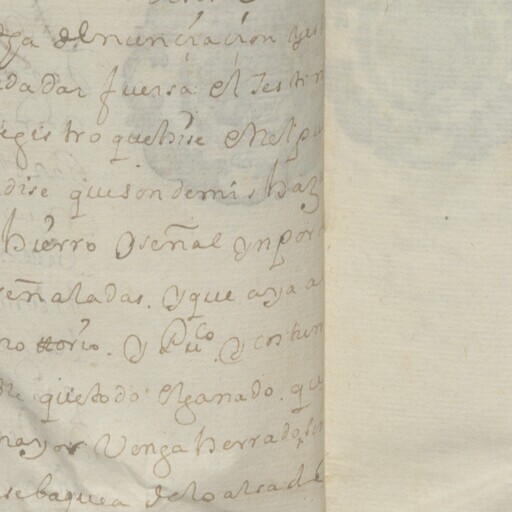 denunciacion
dadar fuersa el testi
registro quehise enelpu
dise queson demi s haz
hierro Y señal Ynpor
señaladas. Y que aya a
no ttorio. Y Puco Y costum
que todo el ganado. qu
mayor Venga herrado
sebaquea delo alsad